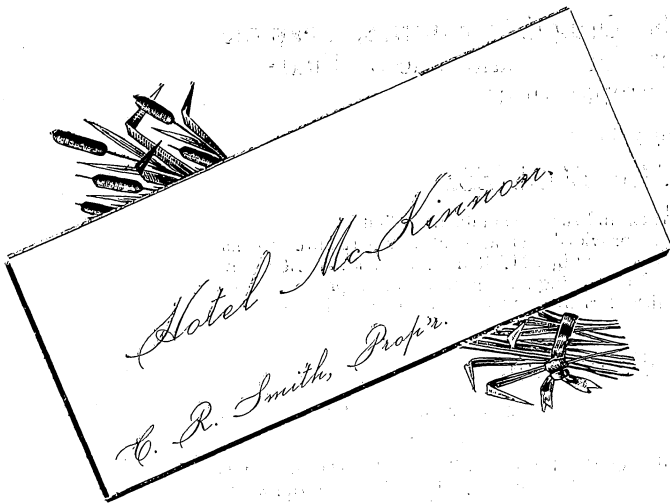 Hotel McKinnon.
C. R. Smith, Prop'r.